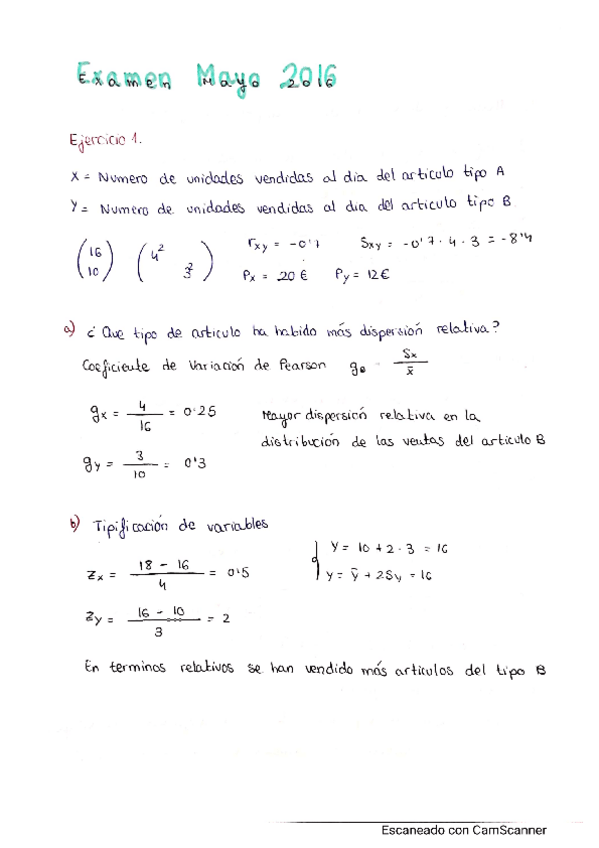 Examen Mayo 2016
Ejercicio 1.
X = Numero de unidades vendidas al dia del articulo tipo A
Y = Numero de unidades vendidas al dia del articulo tipo B
(16 10) (4² 3²) rxy = -0'7 Sxy = -0'7 · 4 · 3 = -8'4
Px = 20 € Py = 12 €
a) ¿Que tipo de articulo ha habido más dispersión relativa?
Coeficiente de Variación de Pearson g0 = Sx / x̄
gx = 4 / 16 = 0'25 Mayor dispersión relativa en la
distribución de las ventas del articulo B
gy = 3 / 10 = 0'3
b) Tipificación de variables
Zx = 18 - 16 / 4 = 0'5 Y = 10 + 2 · 3 = 16
y = ȳ + 2Sy = 16
Zy = 16 - 10 / 3 = 2
En terminos relativos se han vendido más articulos del tipo B
Escaneado con CamScanner